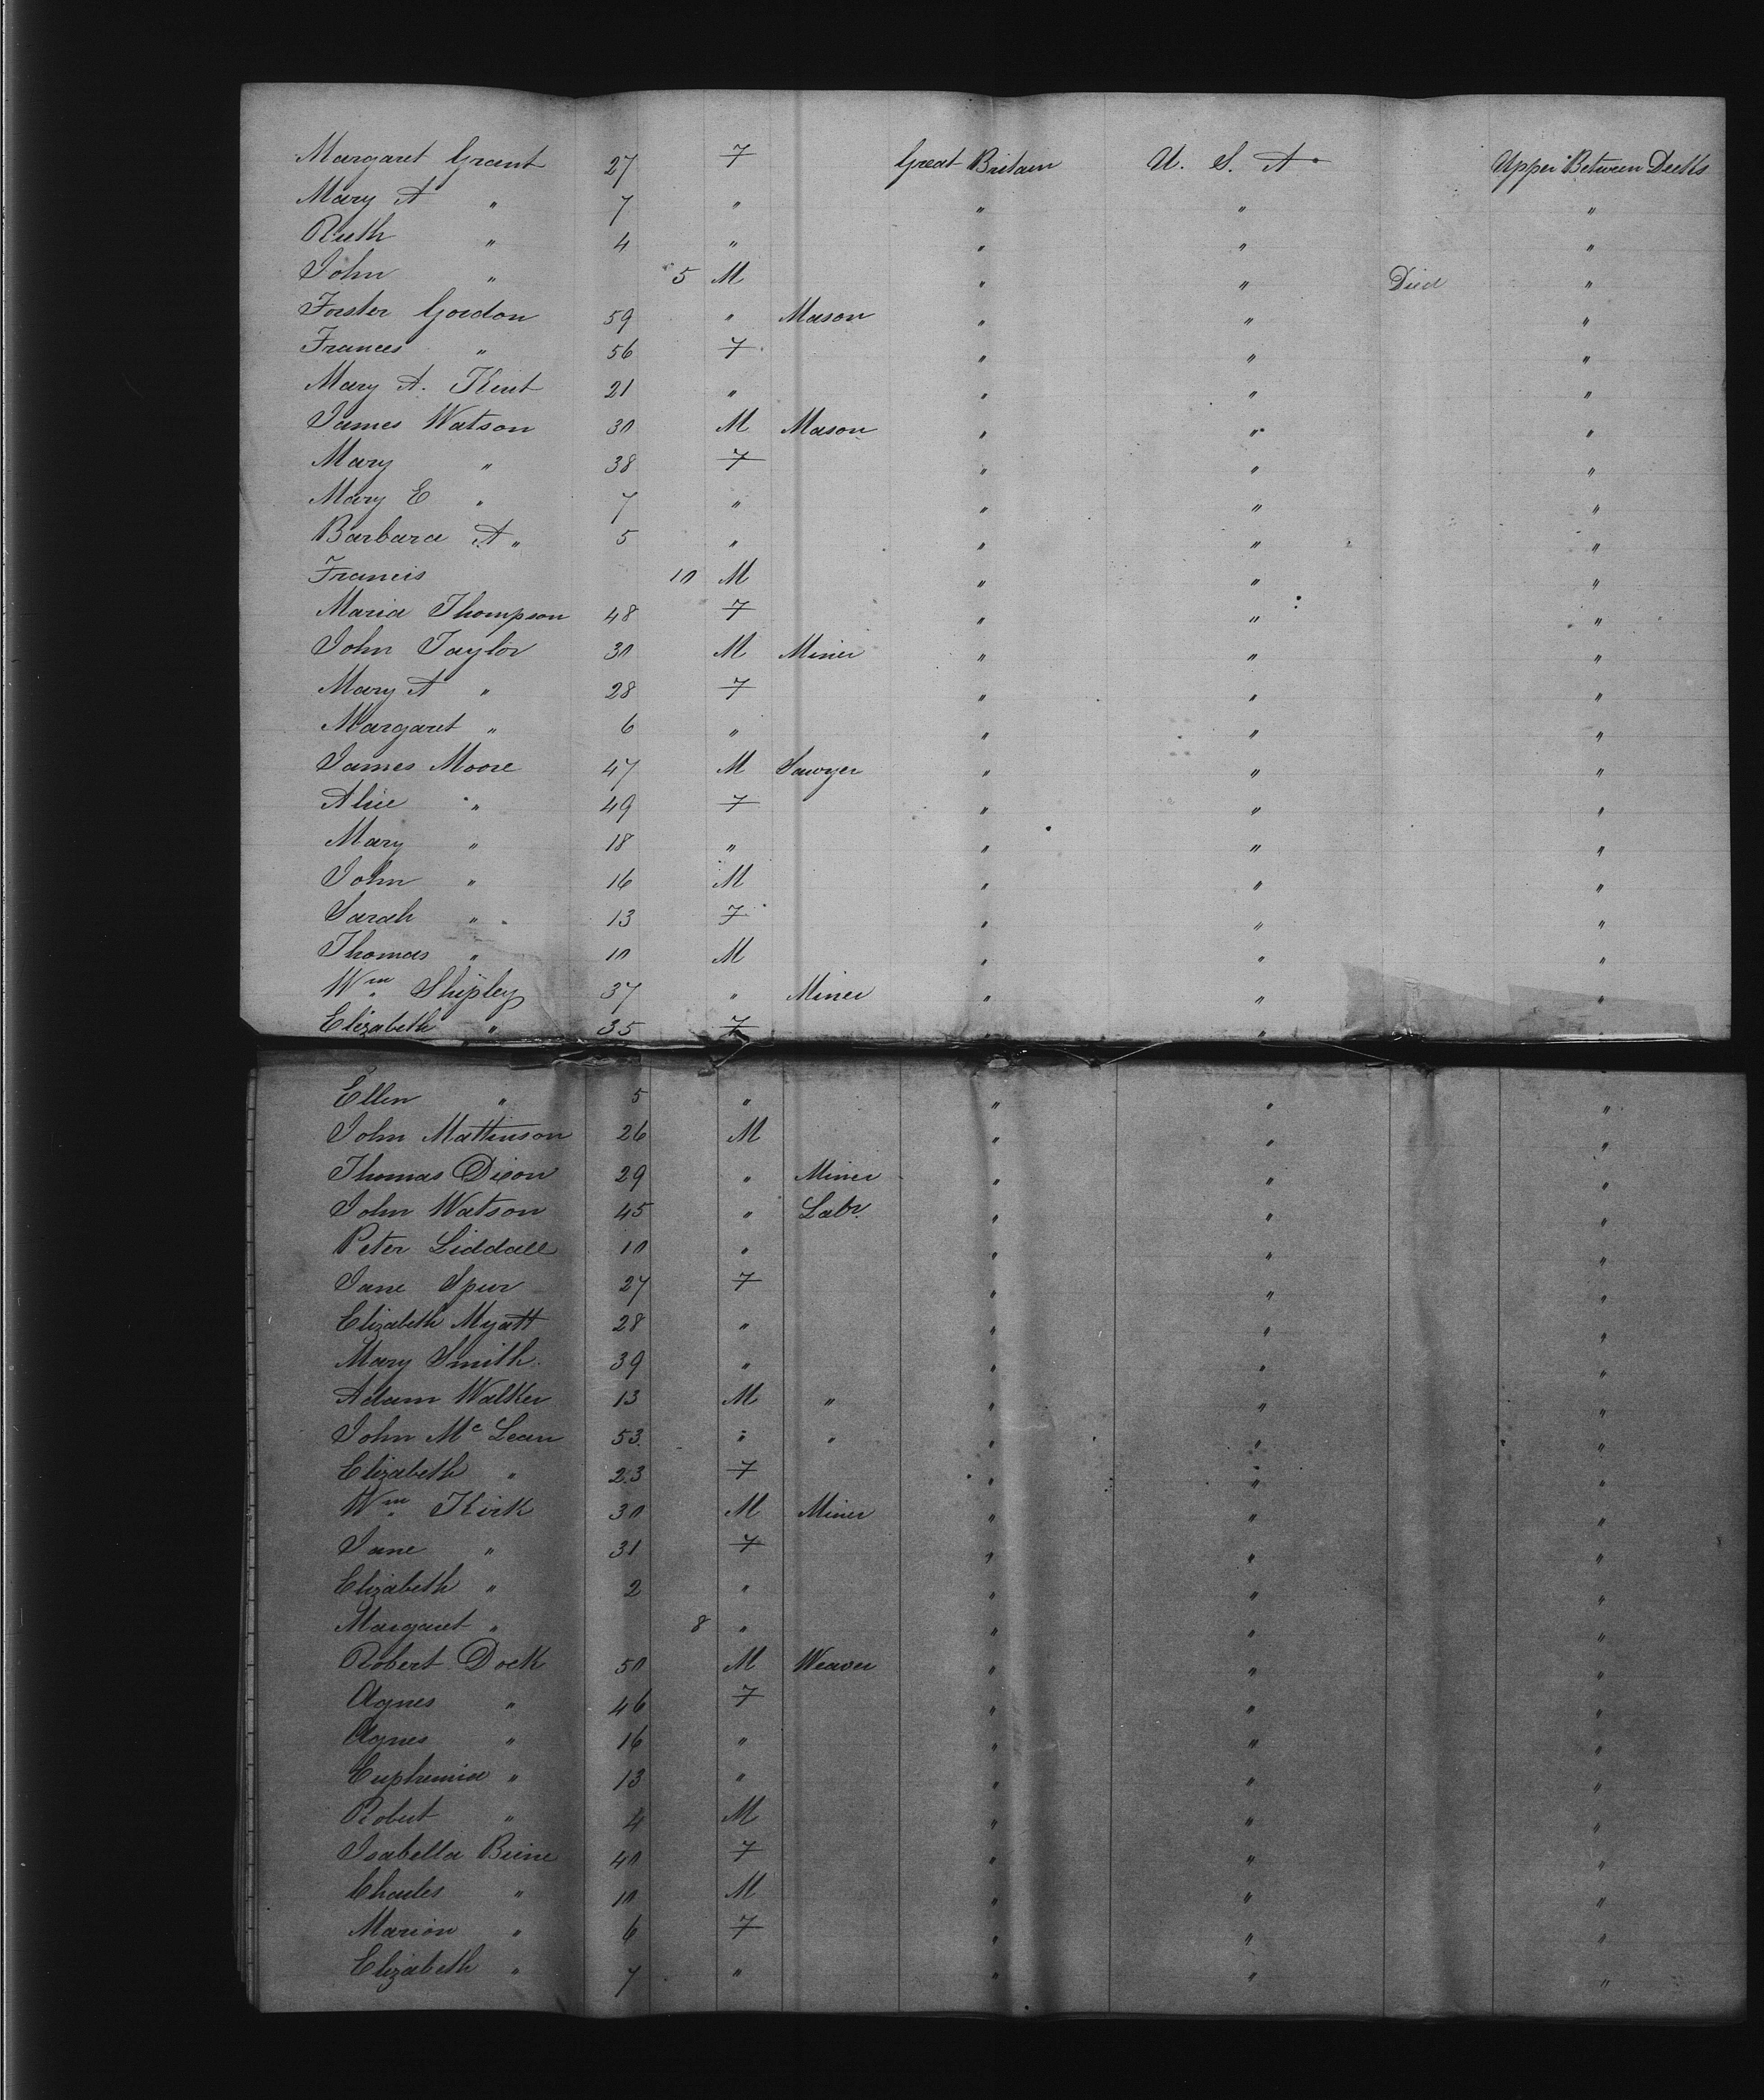 Margaret Grant 27 F Great Britain U. S. A. Upper Between Decks
Mary A " 7 " " " "
Ruth " 4 " " " "
John " 5 M " " Died "
Forster Gordon 59 " Mason " " "
Frances " 56 F " " "
Mary A. Kent 21 " " " "
James Watson 30 M Mason " " "
Mary " 38 F " " "
Mary E " 7 " " " "
Barbara A " 5 " " " "
Francis 10 M " " "
Maria Thompson 48 F " " "
John Taylor 30 M Miner " " "
Mary A " 28 F " " "
Margaret " 6 " " " "
James Moore 47 M Sawyer " " "
Alice " 49 F " " "
Mary " 18 " " " "
John " 16 M " " "
Sarah " 13 F " " "
Thomas " 10 M " " "
Wm Shipley 37 " Miner " " "
Elizabeth " 35 F " " "
Ellen " 5 " " " "
John Mattinson 26 M " " "
Thomas Dixon 29 " Miner " " "
John Watson 45 " Labr. " " "
Peter Liddall 10 " " " "
Jane Spur 27 F " " "
Elizabeth Myatt 28 " " " "
Mary Smith 39 " " " "
Adam Walker 13 M " " " "
John McLean 53 " " " " "
Elizabeth " 23 F " " "
Wm Kirk 30 M Miner " " "
Jane " 31 F " " "
Elizabeth " 2 " " " "
Margaret " 8 " " " "
Robert Dock 50 M Weaver " " "
Agnes " 46 F " " "
Agnes " 16 " " " "
Euphemia " 13 " " " "
Robert " 4 M " " "
Isabella 40 F " " "
Charles " 10 M " " "
Marion " 6 F " " "
Elizabeth " 7 " " " "